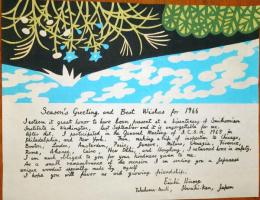 Season's Greeting and Best Wishes for 1966
I esteem it great honor to have been present at a bicentenary of Smithsonian
Institute in Washington, last September and it is unforgettable for me.
After that, I participated in the General Meeting of A.C.S.M. 1965 in
Philadelphia, and New York. Then, making a trip of inspection to Chicago,
Boston, London, Amsterdam, Paris, Zurich, Milano, Venezia, Firenze,
Rome, Athens, Cairo, New Delhi, and Hongkong, I returned home in safety.
I am much obliged to you for your kindness given to me.
As a small remembrance of the season I am sending you a Japanese
unique woodcut specially made by myself.
I hope you will favor us with growing friendship.
Japan